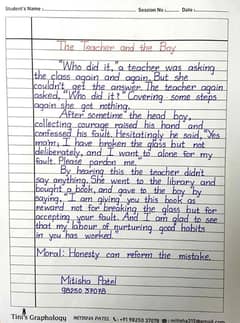 Student's Name :
Session No :
Date :
The Teacher and the Boy
"Who did it," a teacher was asking
the class again and again. But she
couldn't get the answer. The teacher again
asked, "Who did it?" Covering some steps
again she got nothing.
After sometime the head boy,
collecting courage raised his hand and
confessed his fault. Hesitatingly he said, "Yes
mam, I have broken the glass but not
deliberately, and I want to alone for my
fault. Please pardon me."
By hearing this the teacher didn't
say anything. She went to the library and
bought a book, and gave to the boy by
saying, "I am giving you this book as
reward not for breaking the glass but for
accepting your fault. And I am glad to see
that my labour of nurturing good habits
in you has worked"
Moral: Honesty can reform the mistake.
Mitisha Patel
98250 37078
Tini's Graphology
MITISHA PATEL
+91 98250 37078
mitisha310@gmail.com